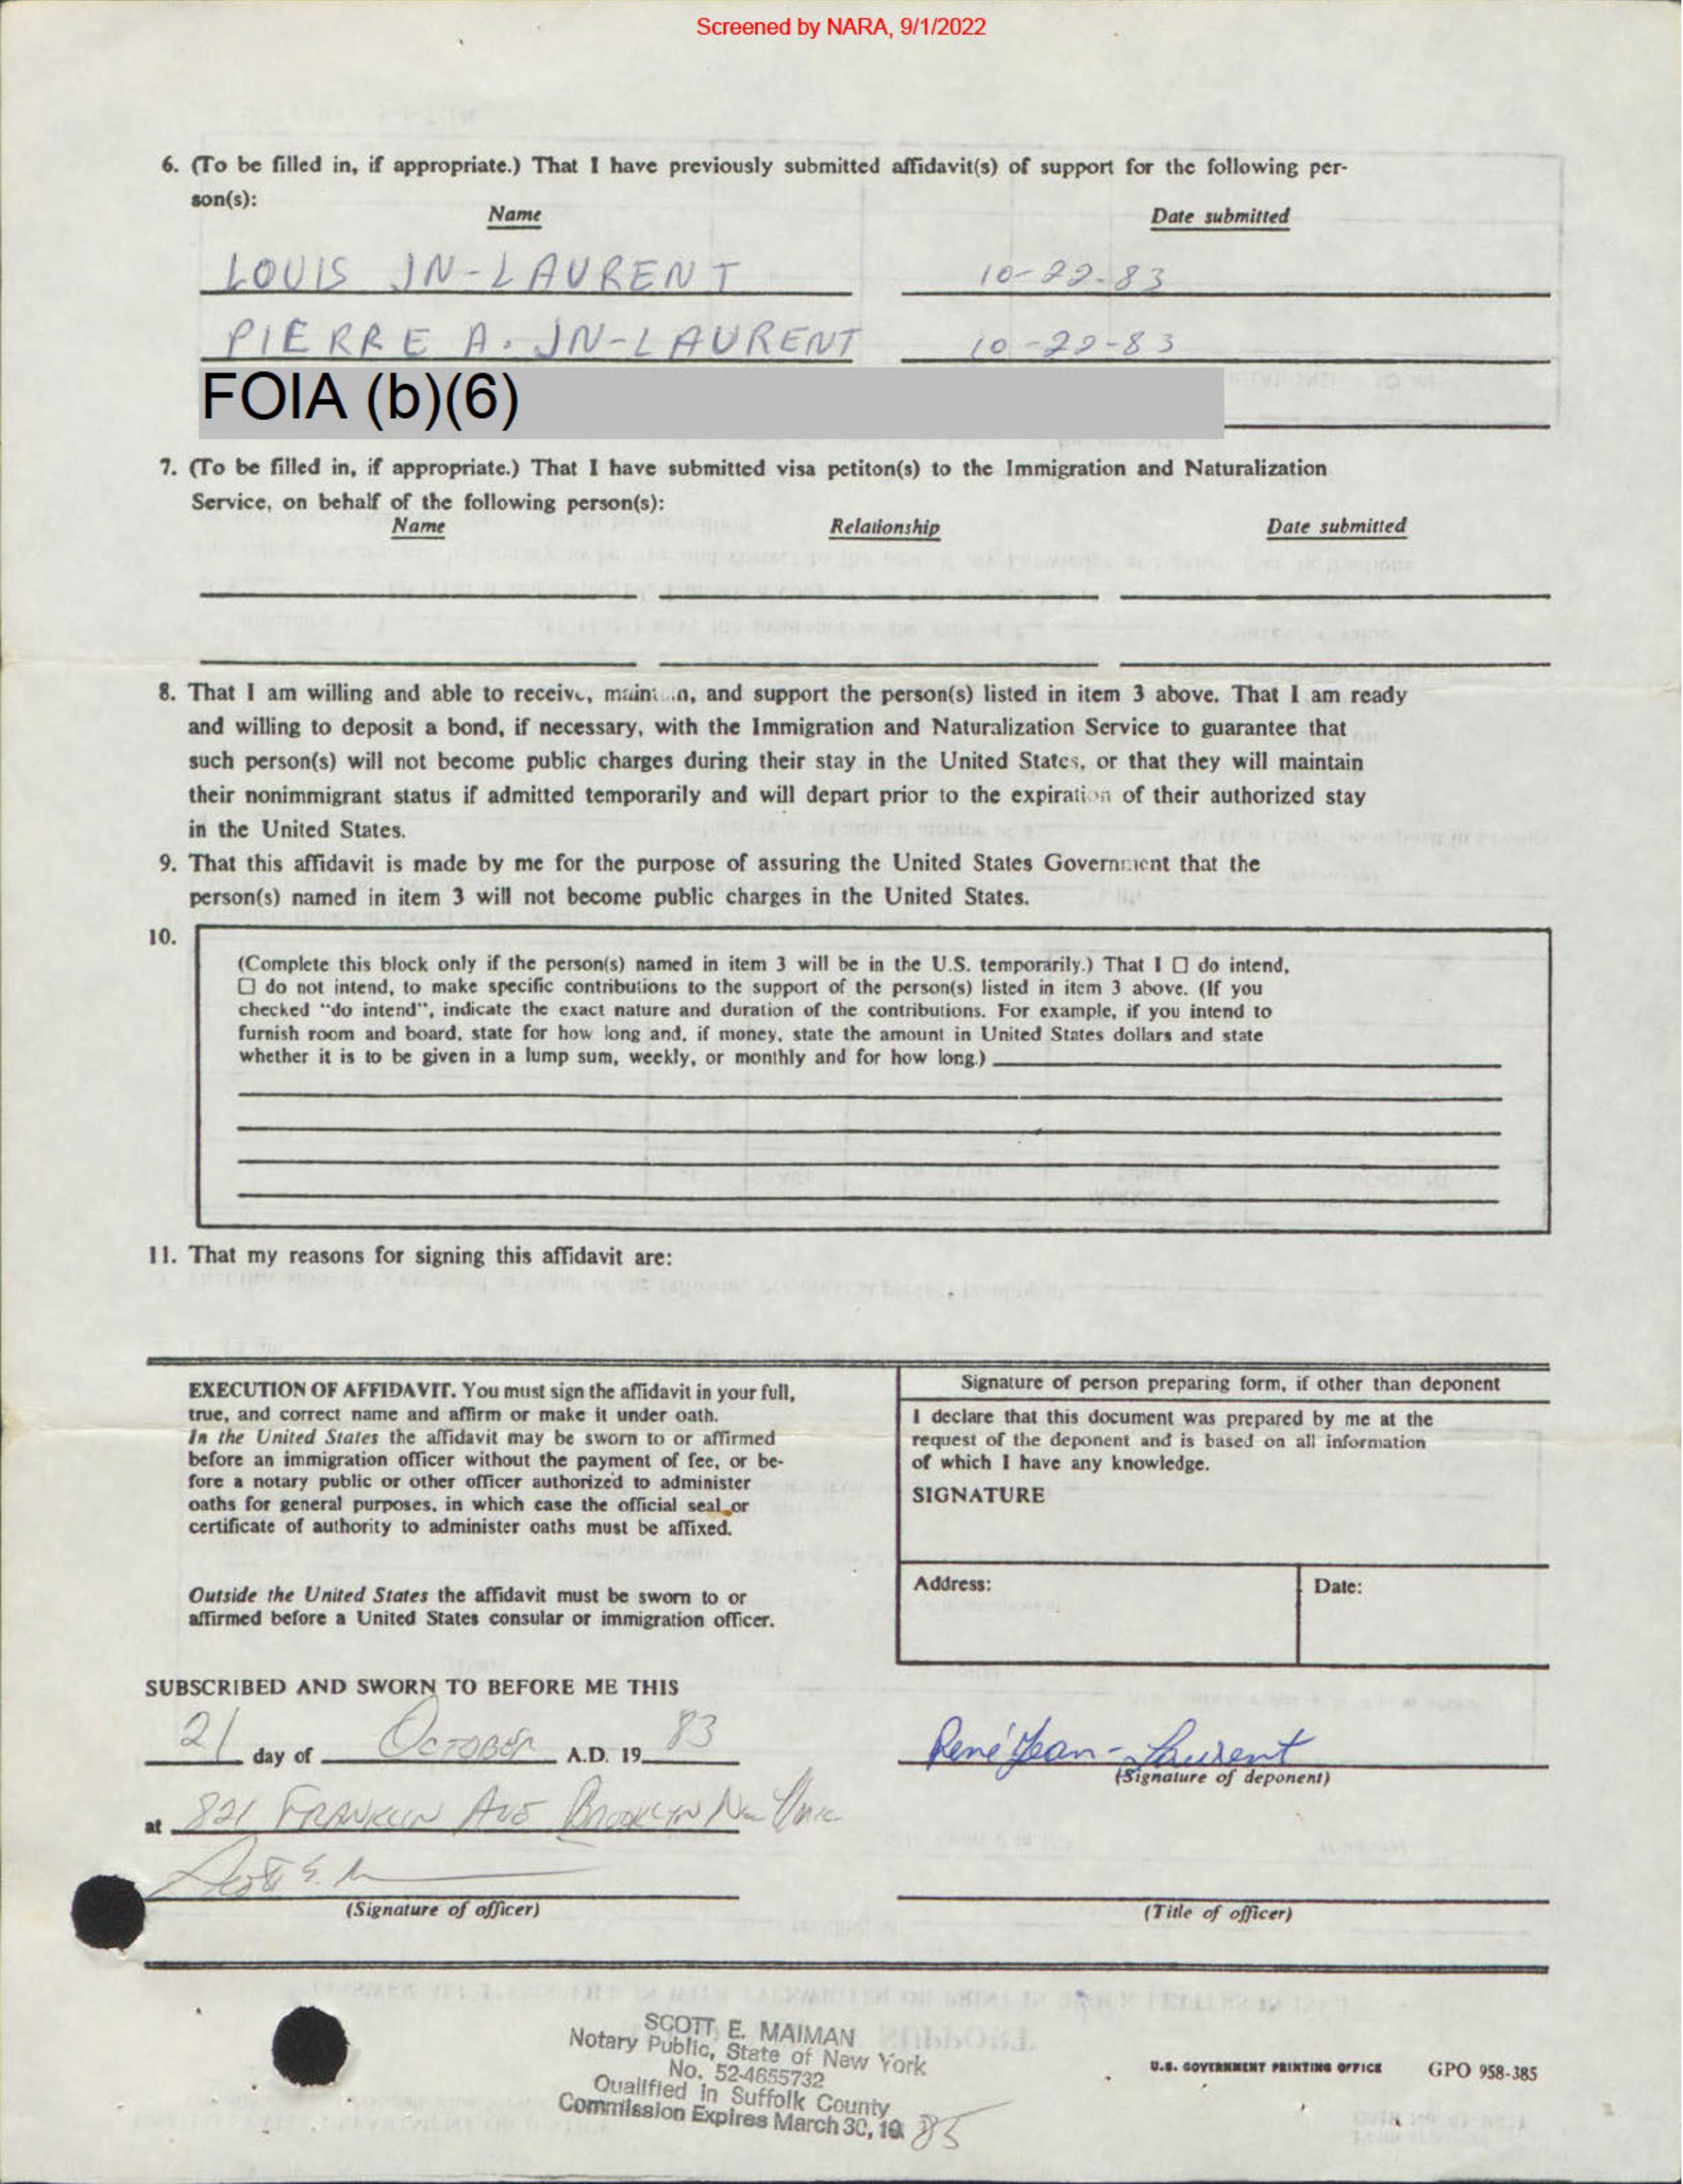 Screened by NARA, 9/1/2022
6. (To be filled in, if appropriate.) That I have previously submitted affidavit(s) of support for the following per-
son(s):
Name Date submitted
LOUIS JN-LAURENT 10-22-83
PIERRE A. JN-LAURENT 10-22-83
FOIA (b)(6)
7. (To be filled in, if appropriate.) That I have submitted visa petiton(s) to the Immigration and Naturalization
Service, on behalf of the following person(s):
Name Relationship Date submitted
8. That I am willing and able to receive, maintain, and support the person(s) listed in item 3 above. That I am ready
and willing to deposit a bond, if necessary, with the Immigration and Naturalization Service to guarantee that
such person(s) will not become public charges during their stay in the United States, or that they will maintain
their nonimmigrant status if admitted temporarily and will depart prior to the expiration of their authorized stay
in the United States.
9. That this affidavit is made by me for the purpose of assuring the United States Government that the
person(s) named in item 3 will not become public charges in the United States.
10.
(Complete this block only if the person(s) named in item 3 will be in the U.S. temporarily.) That I ☐ do intend,
☐ do not intend, to make specific contributions to the support of the person(s) listed in item 3 above. (If you
checked "do intend", indicate the exact nature and duration of the contributions. For example, if you intend to
furnish room and board, state for how long and, if money, state the amount in United States dollars and state
whether it is to be given in a lump sum, weekly, or monthly and for how long.)
11. That my reasons for signing this affidavit are:
EXECUTION OF AFFIDAVIT. You must sign the affidavit in your full,
true, and correct name and affirm or make it under oath.
In the United States the affidavit may be sworn to or affirmed
before an immigration officer without the payment of fee, or be-
fore a notary public or other officer authorized to administer
oaths for general purposes, in which case the official seal or
certificate of authority to administer oaths must be affixed.
Outside the United States the affidavit must be sworn to or
affirmed before a United States consular or immigration officer.
Signature of person preparing form, if other than deponent
I declare that this document was prepared by me at the
request of the deponent and is based on all information
of which I have any knowledge.
SIGNATURE
Address: Date:
SUBSCRIBED AND SWORN TO BEFORE ME THIS
21 day of OCTOBER A.D. 19 83
René Jean-Laurent
(Signature of deponent)
at 821 FRANKLIN AVE BROOKLYN New York
Scott E.
(Signature of officer) (Title of officer)
SCOTT E. MAIMAN
Notary Public, State of New York
No. 52-4655732
Qualified in Suffolk County
Commission Expires March 30, 19 85
U.S. GOVERNMENT PRINTING OFFICE GPO 958-385